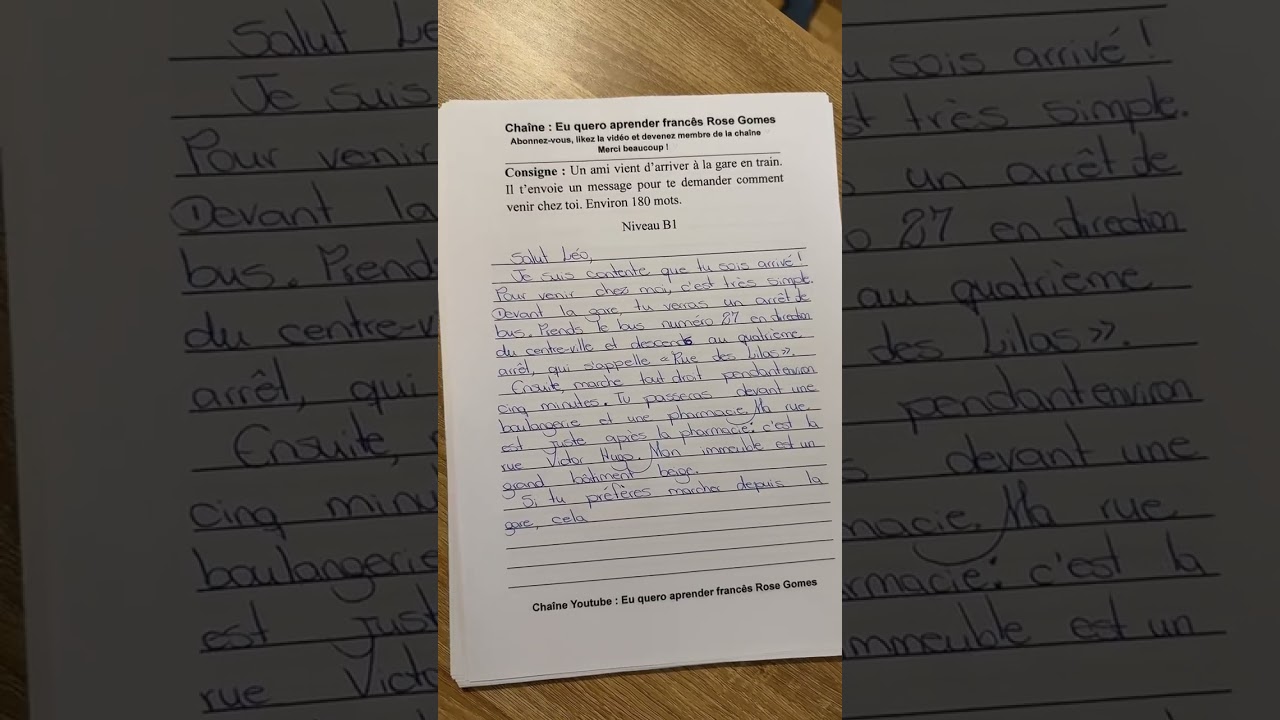 Chaîne : Eu quero aprender francês Rose Gomes
Abonnez-vous, likez la vidéo et devenez membre de la chaîne
Merci beaucoup !
Consigne : Un ami vient d'arriver à la gare en train.
Il t'envoie un message pour te demander comment
venir chez toi. Environ 180 mots.
Niveau B1
Salut Léo,
Je suis contente que tu sois arrivé !
Pour venir chez moi, c'est très simple.
Devant la gare, tu verras un arrêt de
bus. Prends le bus numéro 27 en direction
du centre-ville et descends au quatrième
arrêt, qui s'appelle « Rue des Lilas ».
Ensuite, marche tout droit pendant environ
cinq minutes. Tu passeras devant une
boulangerie et une pharmacie. Ma rue
est juste après la pharmacie : c'est la
rue Victor Hugo. Mon immeuble est un
grand bâtiment beige.
Si tu préfères marcher depuis la
gare, cela
Chaîne Youtube : Eu quero aprender francês Rose Gomes